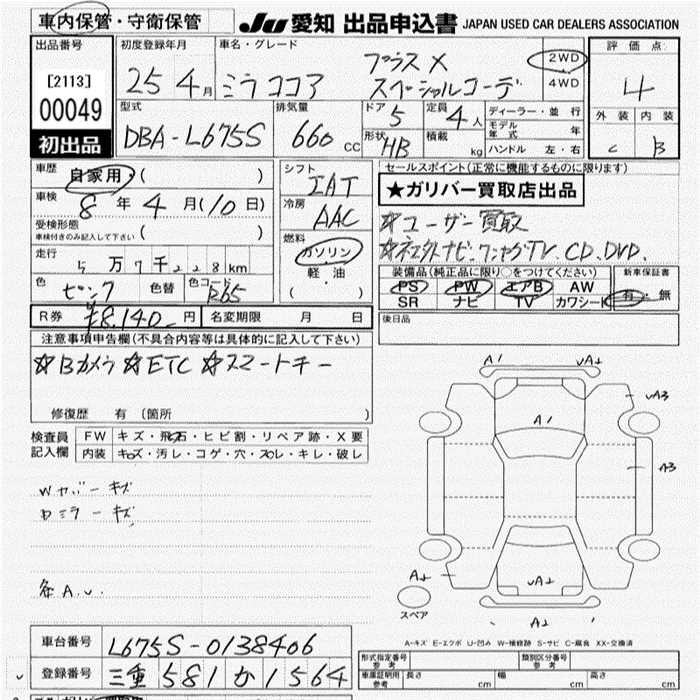 車内保管・守衛保管
JU 愛知 出品申込書 JAPAN USED CAR DEALERS ASSOCIATION
出品番号
[2113]
00049
初出品
初度登録年月
25年4月
車名・グレード
ミラココア プラスX スペシャルコーデ
2WD
4WD
評価点
4
外装 内装
C B
型式
DBA-L675S
排気量
660 CC
ドア 5
定員 4人
形状 HB
積載 kg
ディーラー・並行
モデル年式 年
ハンドル 左・右
車歴
自家用・( )
車検
8年4月(10日)
受検形態
車検付きのみ記入して下さい ( )
走行
5万7千228km
色 ピンク 色替 色コード R65
シフト
IAT
冷房
AAC
燃料
ガソリン
軽・油
( )
セールスポイント(正常に機能するものに限ります)
★ガリバー買取店出品
☆ユーザー買取
☆ネエクトナビ・ワンセグTV、CD、DVD、
装備品(純正品に限り○をつけてください)
PS PW エアB AW
SR ナビ TV カワシート
新車保証書
有・無
R券 ¥8,140-円 名変期限 月 日
後日品
注意事項申告欄(不具合内容等は具体的に記入して下さい)
☆Bカメラ ☆ETC ☆スマートキー
修復歴 有 (箇所 )
検査員記入欄
FW キズ・飛石・ヒビ割・リペア跡・X要
内装 キズ・汚レ・コゲ・穴・スレ・キレ・破レ
Wカバーキズ
Dミラーキズ
条A.U.
A1 UA2
UA3
A1
A3
A2
UA2
A2
スペア
A-キズ E-エクボ U-凹み W-補修跡 S-サビ C-腐食 XX-交換済
車台番号 L675S-0138406
登録番号 三重 581 か 1564
型式指定番号 参考
類別区分番号 参考
車庫証明用 参考 長さ cm 幅 cm 高さ cm